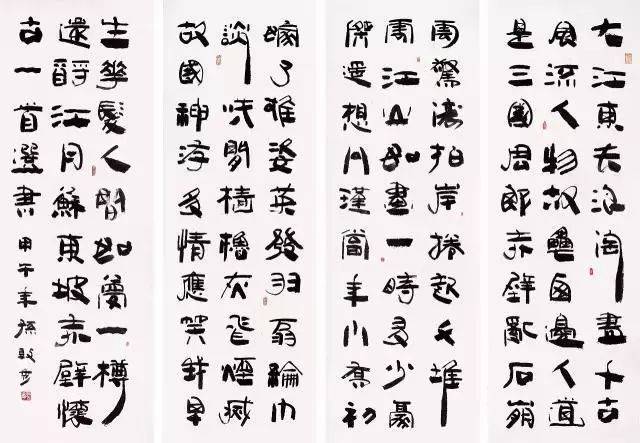 大江東去浪淘盡千古
風流人物故壘西邊人道
是三國周郎赤壁亂石崩
雲驚濤拍岸捲起千堆
雪江山如畫一時多少豪
傑遥想公瑾當年小喬初
嫁了雄姿英發羽扇綸巾
談笑間檣櫓灰飛煙滅
故國神游多情應笑我早
生華髮人間如夢一樽
還酹江月蘇東坡赤壁懷
古一首選書甲午年孫